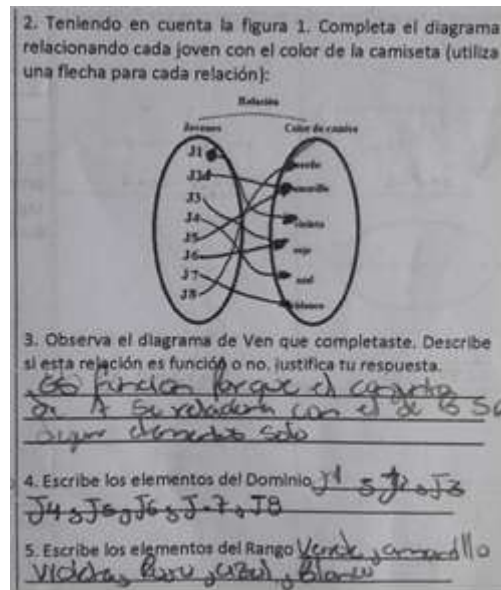 2. Teniendo en cuenta la figura 1. Completa el diagrama
relacionando cada joven con el color de la camiseta (utiliza
una flecha para cada relación):
Relación
Jovenes Color de camisa
J1
J2
J3
J4
J5
J6
J7
J8
verde
amarillo
violeta
rojo
azul
blanco
3. Observa el diagrama de Ven que completaste. Describe
si esta relación es función o no, justifica tu respuesta.
Es función porque el conjunto
A se relaciona con el de
elementos solo
4. Escribe los elementos del Dominio J1, J2, J3
J4, J5, J6, J-7, J8
5. Escribe los elementos del Rango Verde, amarillo
Violeta, Rojo, azul, Blanco